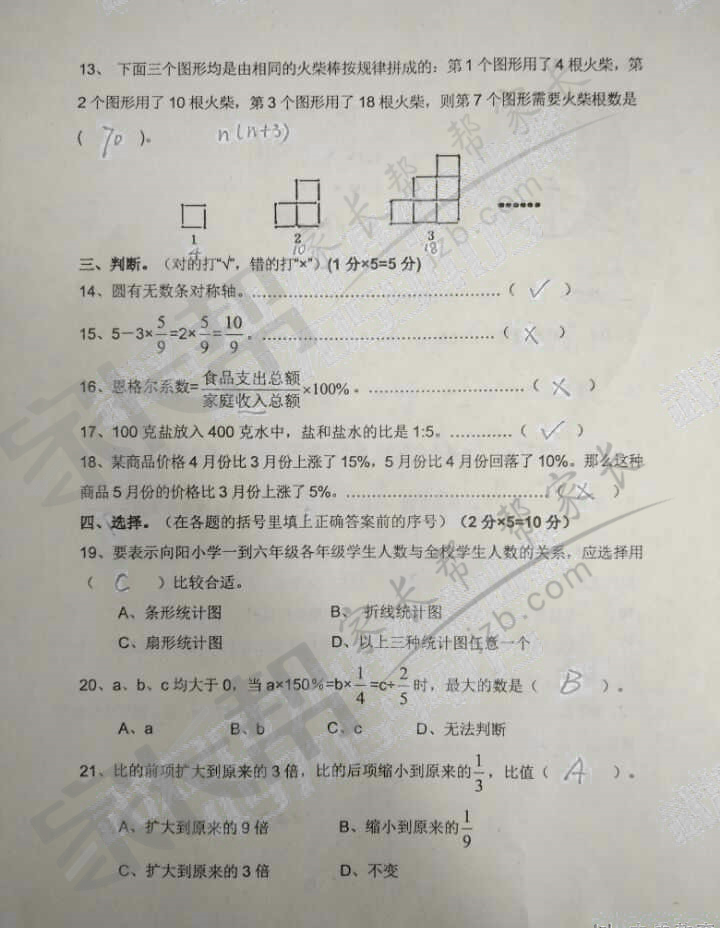 13、下面三个图形均是由相同的火柴棒按规律拼成的：第1个图形用了4根火柴，第
2个图形用了10根火柴，第3个图形用了18根火柴，则第7个图形需要火柴根数是
（ 70 ）。 n(n+3)
1 2 3 ……
4 10 18
三、判断。（对的打“√”，错的打“×”）(1分×5=5分)
14、圆有无数条对称轴。……………………………………（ √ ）
15、5－3×5/9=2×5/9=10/9。……………………………………（ × ）
16、恩格尔系数=食品支出总额/家庭收入总额×100%。……………………（ × ）
17、100克盐放入400克水中，盐和盐水的比是1:5。…………（ √ ）
18、某商品价格4月份比3月份上涨了15%，5月份比4月份回落了10%。那么这种
商品5月份的价格比3月份上涨了5%。……………………………（ × ）
四、选择。（在各题的括号里填上正确答案前的序号）（2分×5=10分）
19、要表示向阳小学一到六年级各年级学生人数与全校学生人数的关系，应选择用
（ C ）比较合适。
A、条形统计图 B、 折线统计图
C、扇形统计图 D、以上三种统计图任意一个
20、a、b、c均大于0，当a×150%=b×1/4=c÷2/5时，最大的数是（ B ）。
A、a B、b C、c D、无法判断
21、比的前项扩大到原来的3倍，比的后项缩小到原来的1/3，比值（ A ）。
A、扩大到原来的9倍 B、缩小到原来的1/9
C、扩大到原来的3倍 D、不变
家长帮
家长帮 帮家长
jzb.com
家长帮 帮家长
jzb.com
家长帮